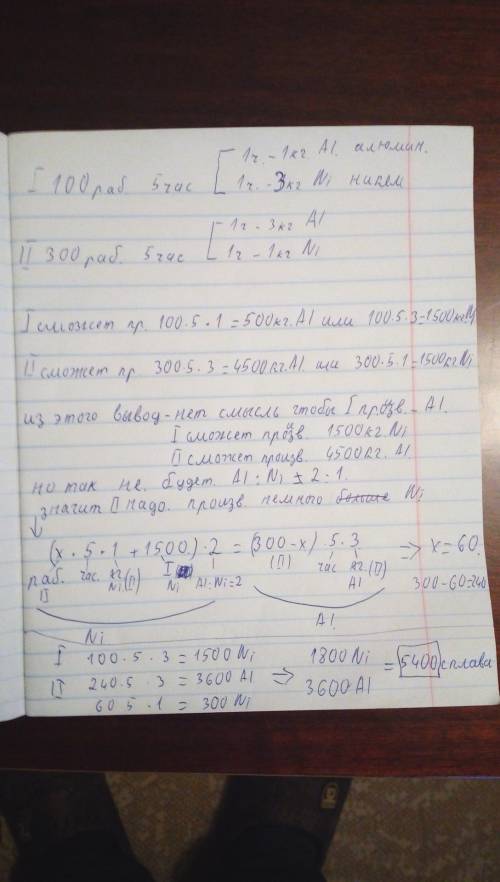 1ч. - 1кг Al. алюмин.
I 100 раб. 5 час
1ч. - 3кг Ni никел
1ч - 3кг Al
II 300 раб. 5 час
1ч - 1кг Ni
I сможет пр. 100·5·1=500кг.Al или 100·5·3=1500кг Ni
II сможет пр. 300·5·3=4500кг.Al или 300·5·1=1500кг Ni
из этого вывод-нет смысль чтобы I произв. - Al.
I сможет произв. 1500кг. Ni
II сможет произв. 4500кг. Al.
но так не будет Al : Ni = 2:1.
значит II надо. произв. немного Ni
(x · 5 · 1 + 1500) · 2 = (300-x) · 5 · 3 => x=60.
раб. час кг. I Al:Ni=2 (II) час кг.(II) 300-60=240
II Ni(II) Ni Al
Ni Al.
I 100·5·3=1500 Ni 1800 Ni
II 240·5·3=3600 Al => = 5400 сплава
60 5·1 = 300 Ni 3600 Al